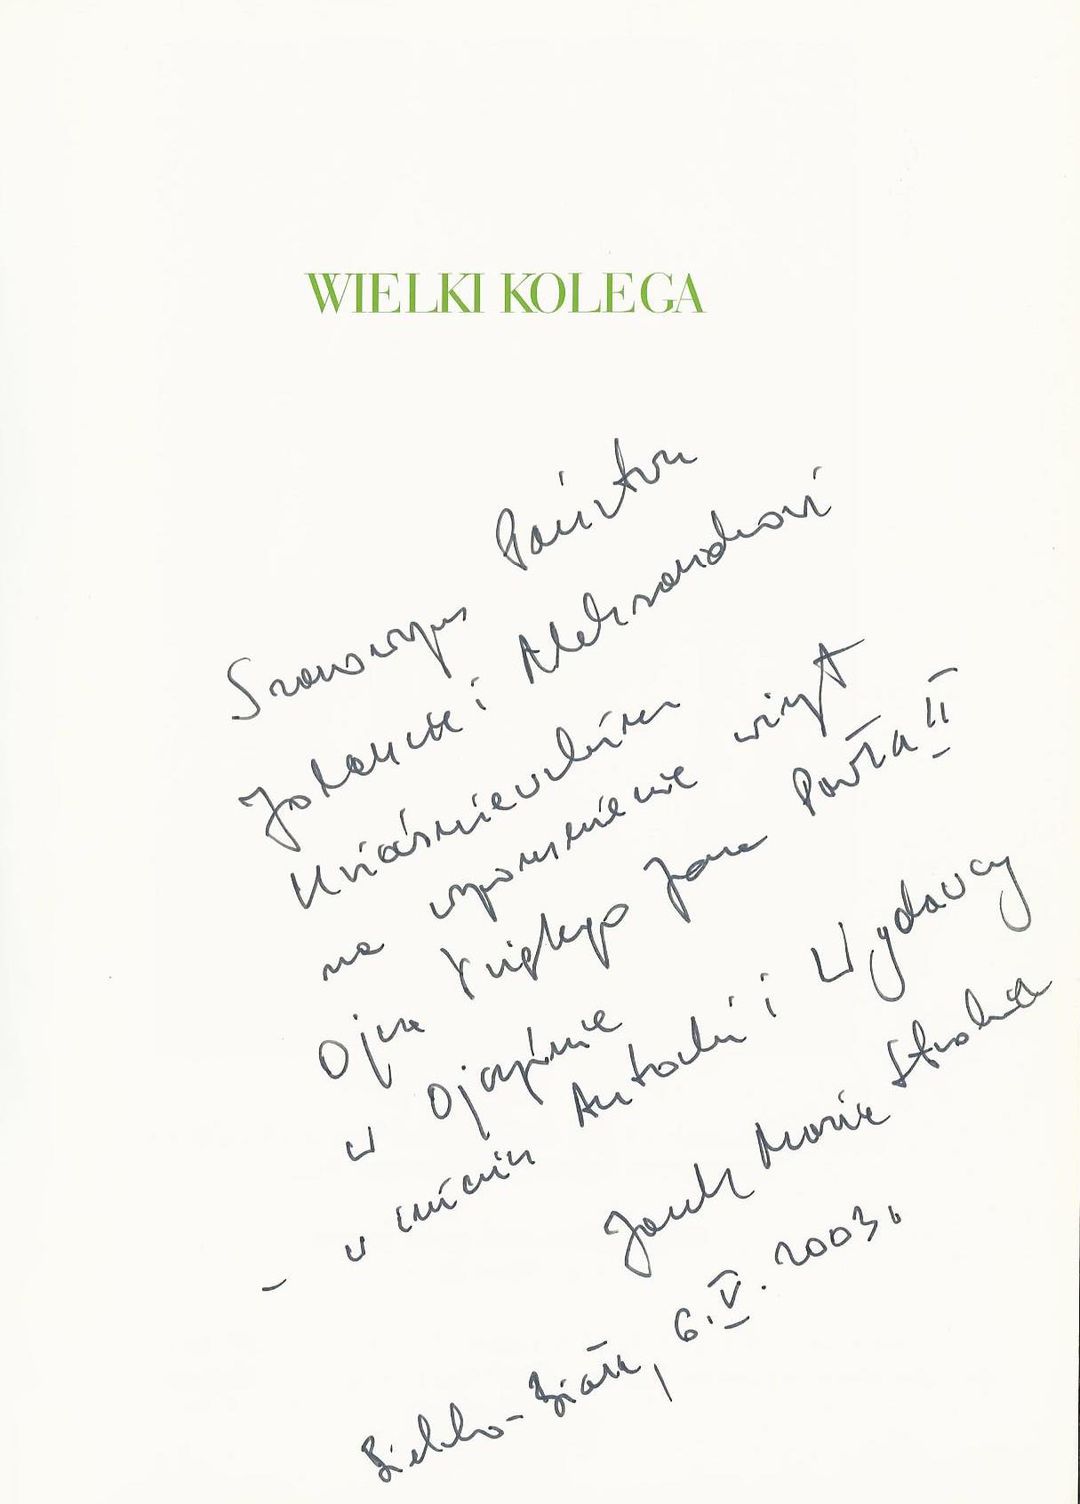 WIELKI KOLEGA
Szanownym Państwu
Jolancie i Aleksandrowi
Kwaśniewskim
na wspomnienie wizyt
Ojca Świętego Jana Pawła II
w Ojczyźnie
- w imieniu Autorki i Wydawcy
Jacek Maria
Bielsko-Biała, 6.V.2003.